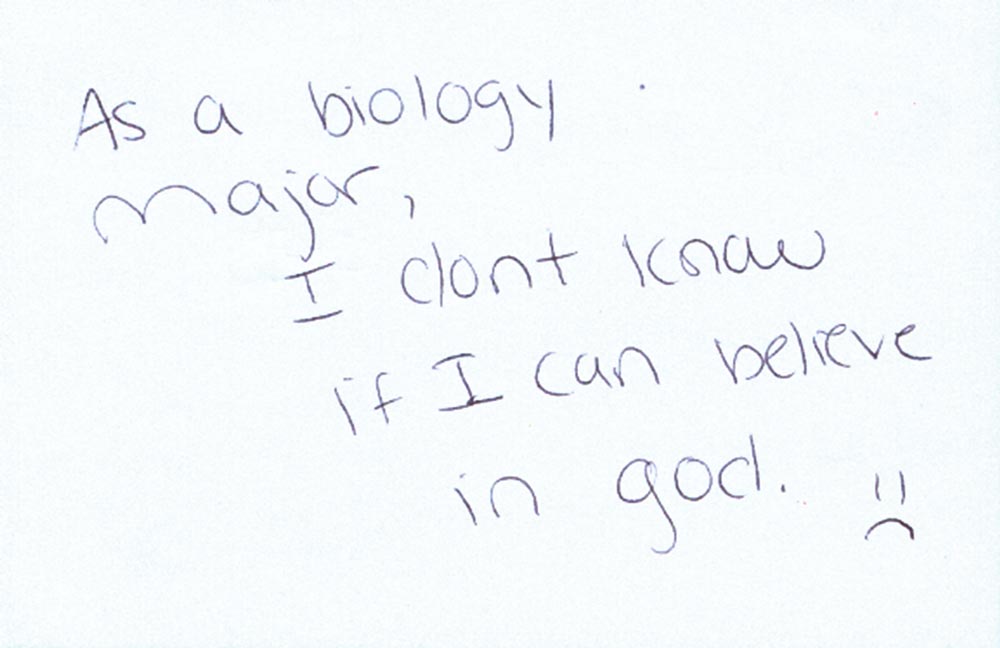 As a biology
major,
I dont know
if I can believe
in god.